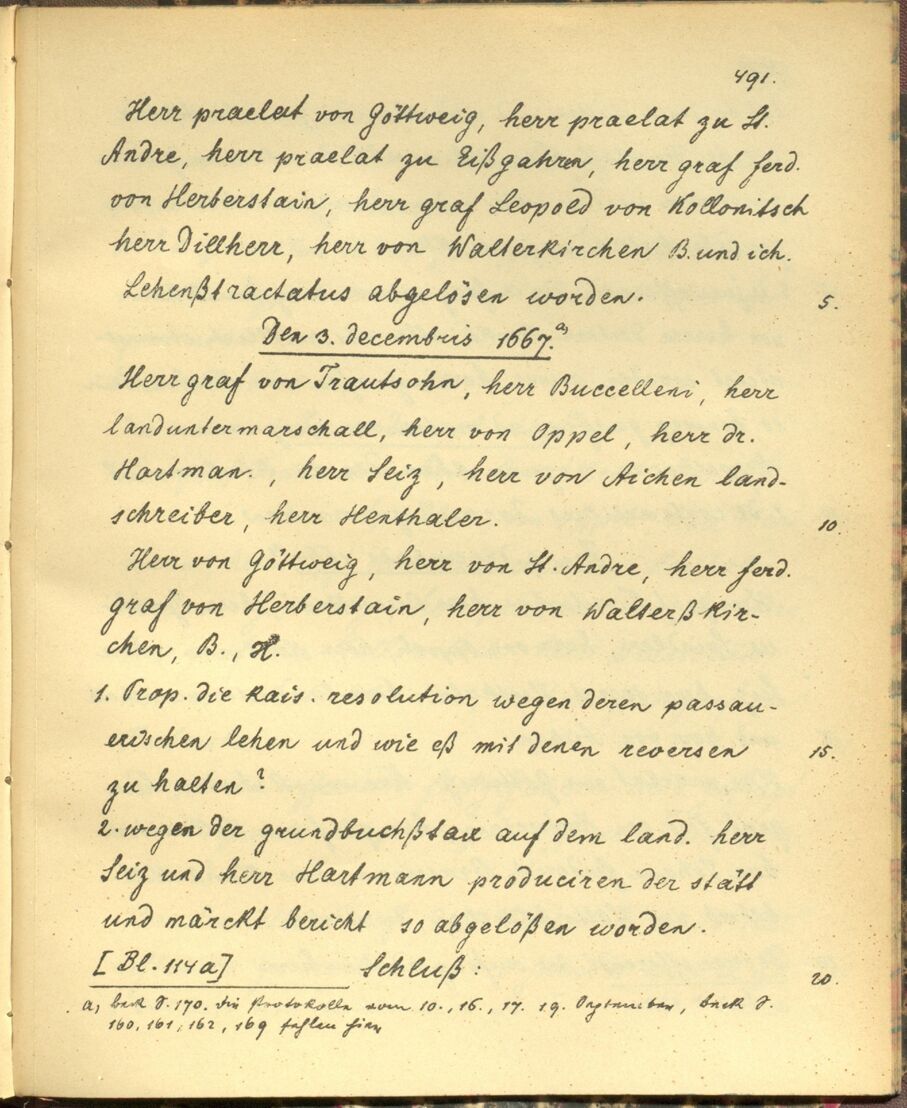 491.
Herr praelat von Göttweig, herr praelat zu St.
Andre, herr praelat zu Eißgahren, herr graf ferd.
von Herberstain, herr graf Leopold von Kollonitsch
herr Dillherr, herr von Walterkirchen B. und ich.
Lehenßtractatus abgelösen worden. 5.
Den 3. decembris 1667. a)
Herr graf von Trautsohn, herr Buccelleni, herr
landuntermarschall, herr von Oppel, herr dr.
Hartman., herr Seiz, herr von Aichen land-
schreiber, herr Henthaler. 10.
Herr von Göttweig, herr von St. Andre, herr ferd.
graf von Herberstain, herr von Walterßkir-
chen, B., H.
1. Prop. die kais. resolution wegen deren passau-
erischen lehen und wie eß mit denen reversen 15.
zu halten?
2. wegen der grundbuchßtax auf dem land. herr
Seiz und herr Hartmann produciren der stätt
und märckt bericht so abgelößen worden.
[Bl. 114a] Schluß: 20.
a) Beck S. 170. Die Protokolle vom 10., 16., 17. 19. September, Beck S.
160, 161, 162, 169 fehlen hier